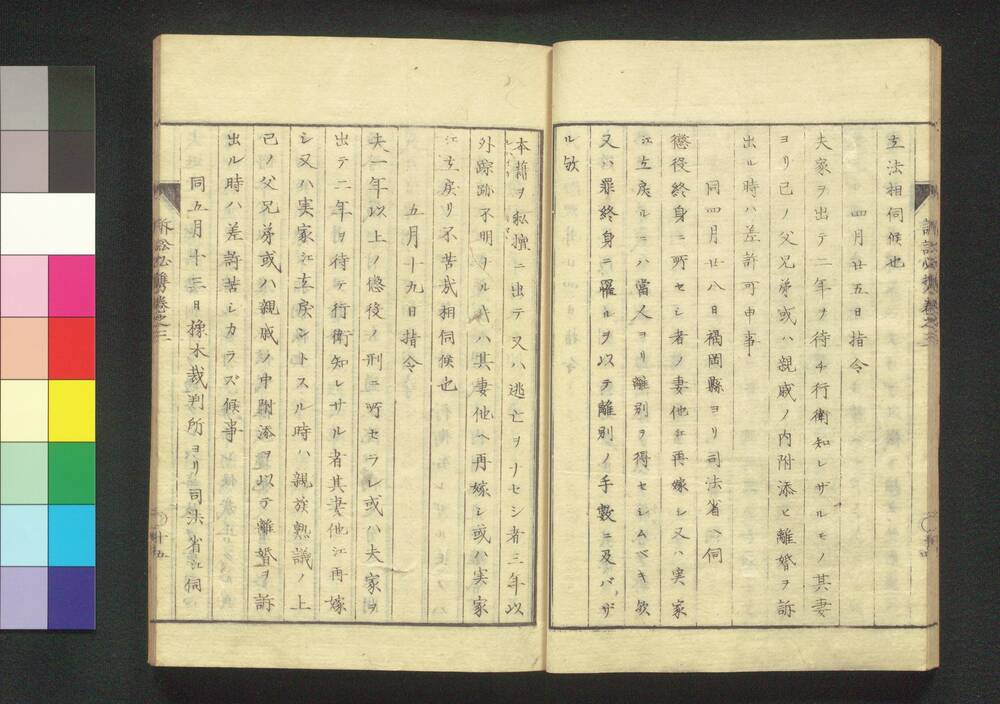 立法相伺候也
四月廿五日指令
夫家ヲ出テ二年ヲ待チ行衛知レザルモノ其妻
ヨリ己ノ父兄弟或ハ親戚ノ内附添ヒ離婚ヲ訴
出ル時ハ差許可申事
同四月廿八日福岡縣ヨリ司法省ヘ伺
懲役終身ニ所セシ者ノ妻他江再嫁シ又ハ実家
江立戻ルニハ當人ヨリ離別ヲ得セシムベキ欤
又ハ罪終身ニ罹ルヲ以テ離別ノ手數ニ及バザ
ル欤
本籍ヲ私擅ニ出テ又ハ逃亡ヲナセシ者三年以
外踪跡不明ヲルハ其妻他ヘ再嫁シ或ハ実家
江立戻リ不苦哉相伺候也
五月十九日指令
夫一年以上ノ懲役ノ刑ニ所セラレ或ハ夫家ヲ
出テ二年ヲ待テ行衛知レサル者其妻他江再嫁
シ又ハ実家江立戻ントスル時ハ親族熟議ノ上
己ノ父兄弟或ハ親戚ノ中附添ヲ以テ離婚ヲ訴
出ル時ハ差許苦シカラズ候事
同五月十三日橡木裁判所ヨリ司法省江伺
訴訟必携巻之三
十五